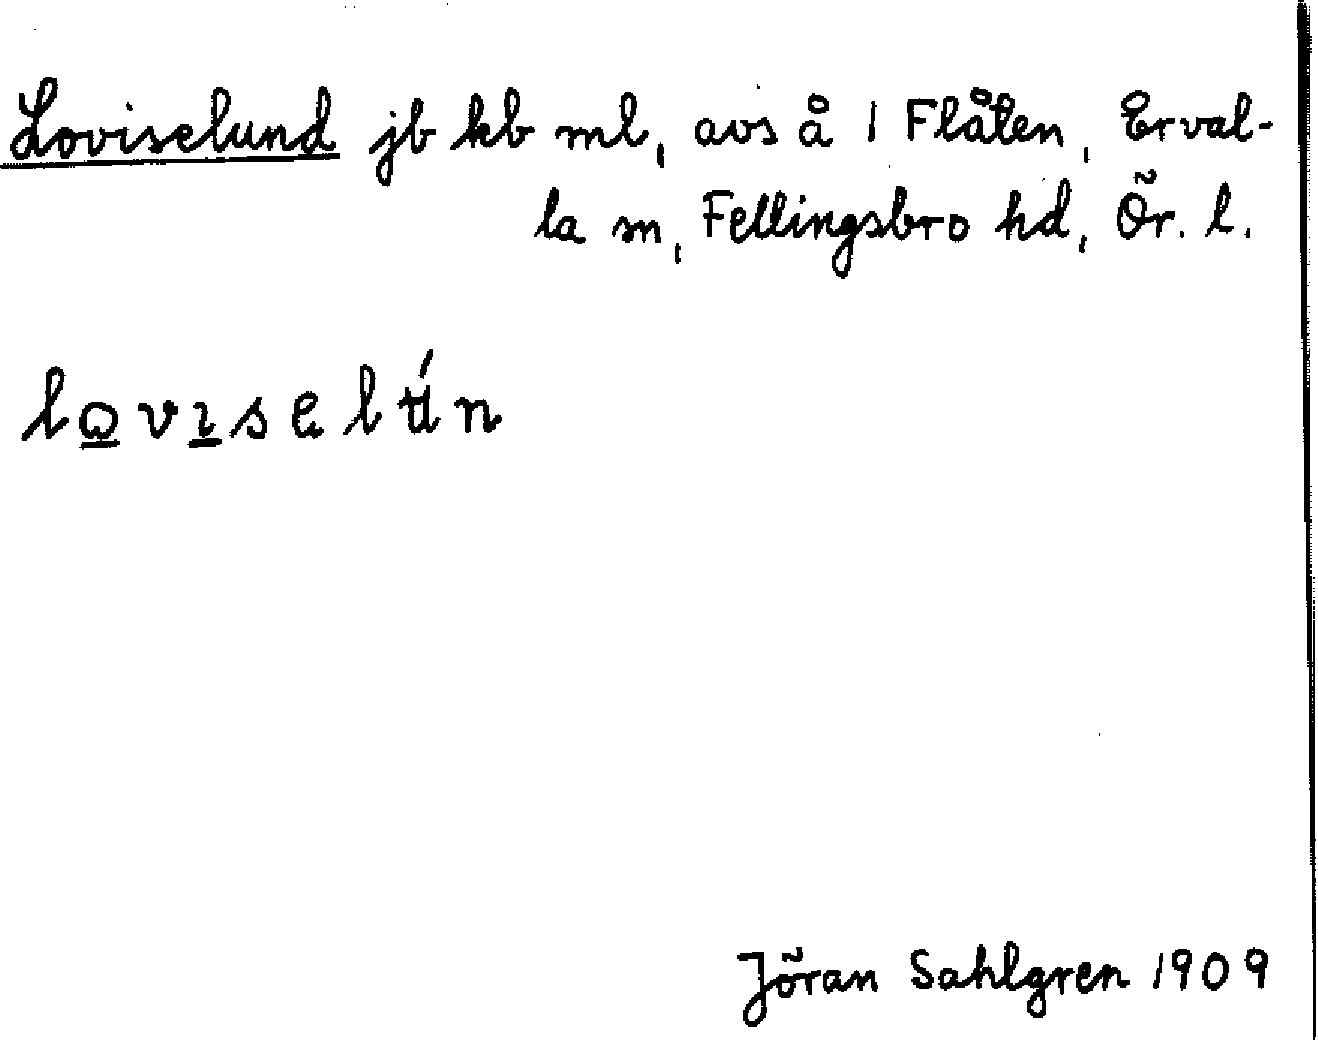 Loviselund jb kb ml, avs å 1 Flåten, Erval-
la sn, Fellingsbro hd, Ör. l.
lo̲vı̲selún
Jöran Sahlgren 1909